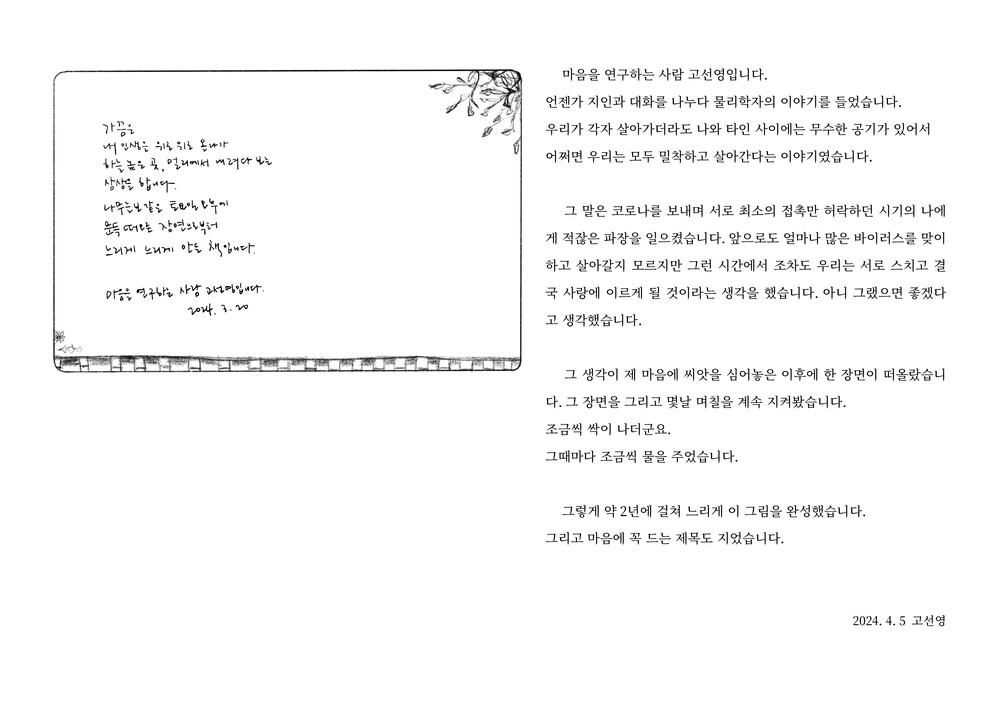 가끔은
내 인생을 위로 위로 올라가
하늘 높은 곳, 멀리에서 내려다 보는
상상을 합니다.
토요일 오후에
문득 떠오른 장면으로부터
느리게 느리게 만든 책입니다.
마음을 연구하는 사람 고선영입니다.
2024. 3. 20
마음을 연구하는 사람 고선영입니다.
언젠가 지인과 대화를 나누다 물리학자의 이야기를 들었습니다.
우리가 각자 살아가더라도 나와 타인 사이에는 무수한 공기가 있어서
어쩌면 우리는 모두 밀착하고 살아간다는 이야기였습니다.
그 말은 코로나를 보내며 서로 최소의 접촉만 허락하던 시기의 나에
게 적잖은 파장을 일으켰습니다. 앞으로도 얼마나 많은 바이러스를 맞이
하고 살아갈지 모르지만 그런 시간에서 조차도 우리는 서로 스치고 결
국 사랑에 이르게 될 것이라는 생각을 했습니다. 아니 그랬으면 좋겠다
고 생각했습니다.
그 생각이 제 마음에 씨앗을 심어놓은 이후에 한 장면이 떠올랐습니
다. 그 장면을 그리고 몇날 며칠을 계속 지켜봤습니다.
조금씩 싹이 나더군요.
그때마다 조금씩 물을 주었습니다.
그렇게 약 2년에 걸쳐 느리게 이 그림을 완성했습니다.
그리고 마음에 꼭 드는 제목도 지었습니다.
2024. 4. 5 고선영